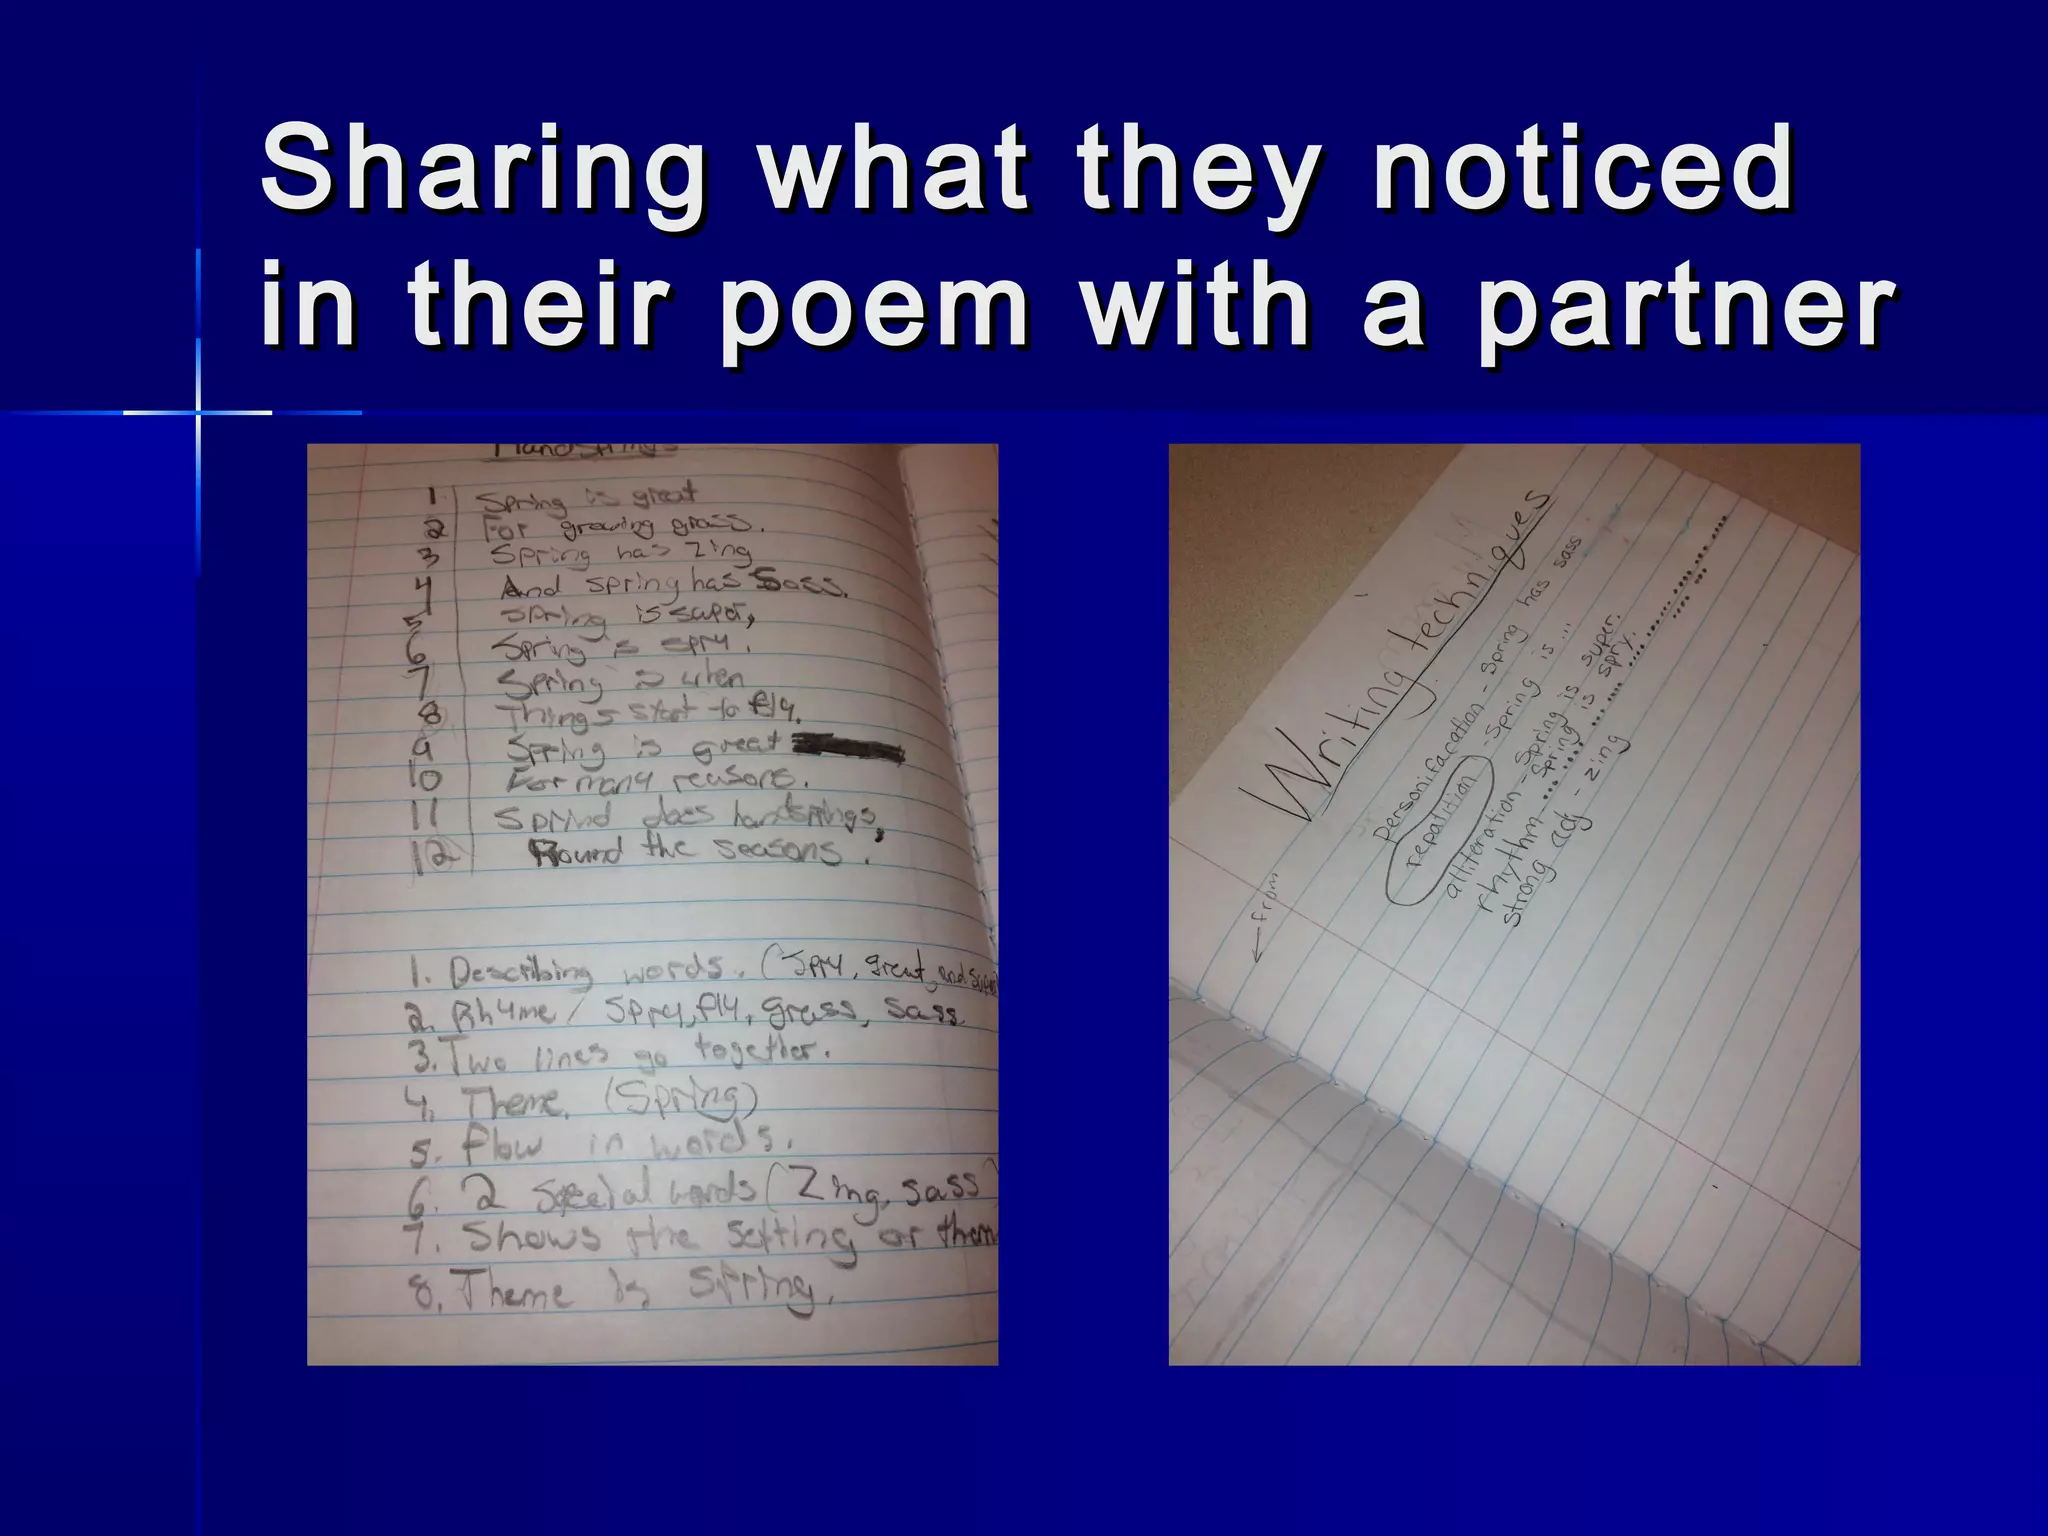 Sharing what they noticed
in their poem with a partner
Handsprings
1 Spring is great
2 For growing grass.
3 Spring has Zing
4 And spring has Sass.
5 Spring is super,
6 Spring is spry.
7 Spring is when
8 Things start to fly.
9 Spring is great
10 For many reasons.
11 Sprind does handsprings,
12 Round the seasons.
1. Describing words. (Spry, great, and super
2. Rhyme / Spry, fly, grass, sass
3. Two lines go together.
4. Theme. (Spring)
5. flow in words.
6. 2 Special words (Zing, sass)
7. Shows the setting or them
8. Theme is Spring.
Writing techniques
personifacation - Spring has sass
repatition - Spring is ...
alliteration - Spring is super.
rhythm - Spring is spry.
strong adj - zing
← from